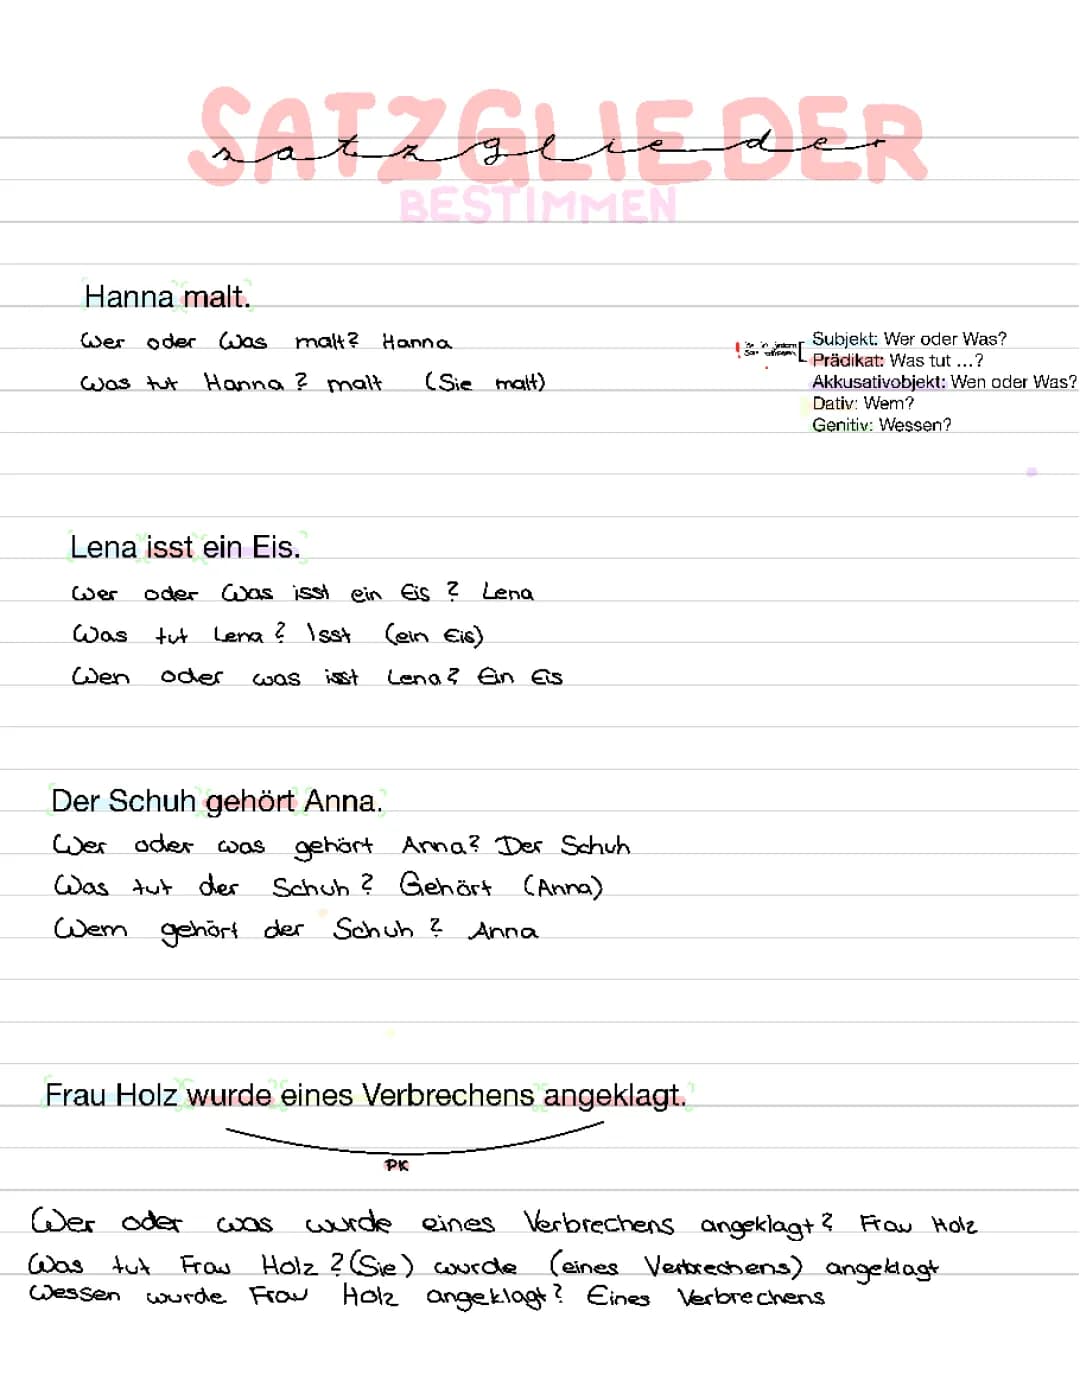 SATZGLIEDER
satzglieder
BESTIMMEN
Hanna malt.
Wer oder Was malt? Hanna
Was tut Hanna? malt (Sie malt)
!
Subjekt: Wer oder Was?
Prädikat: Was tut ...?
Akkusativobjekt: Wen oder Was?
Dativ: Wem?
Genitiv: Wessen?
Lena isst ein Eis.
Wer oder Was isst ein Eis? Lena
Was tut Lena? Isst (ein Eis)
Wen oder was isst Lena? Ein Eis
Der Schuh gehört Anna.
Wer oder was gehört Anna? Der Schuh
Was tut der Schuh? Gehört (Anna)
Wem gehört der Schuh? Anna
Frau Holz wurde eines Verbrechens angeklagt.
PK
Wer oder was wurde eines Verbrechens angeklagt? Frau Holz
Was tut Frau Holz? (Sie) wurde (eines Verbrechens) angeklagt
Wessen wurde Frau Holz angeklagt? Eines Verbrechens